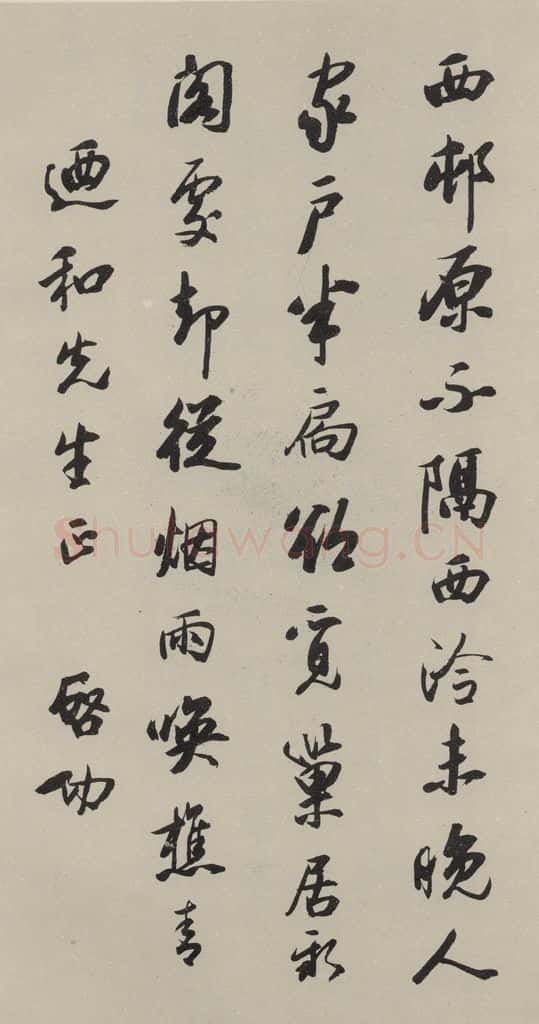 西邨原不隔西泠未晚人
家戶半扃欲覓巢居新
閣處却從烟雨喚樵青
迺和先生正 啓功
Shufawang.CN